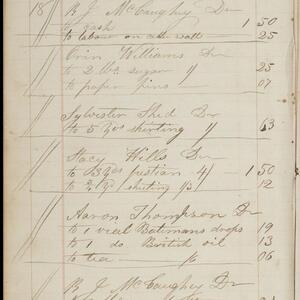 18 // R J McCaughey Dr
to cash 1 50
to labour on 25
Orin Williams Dr
to 2 lbs sugar // 25
to paper pins // 07
Sylvester Shed Dr
to 5 yds shirting // 63
Stacy Wills Dr
to 3 yds fustian 4/ 1 50
to yd shirting 12
Aaron Thompson Dr
to 1 vial Batemans drops 19
to 1 do British oil 13
to tea 06
R J McCaughey Dr